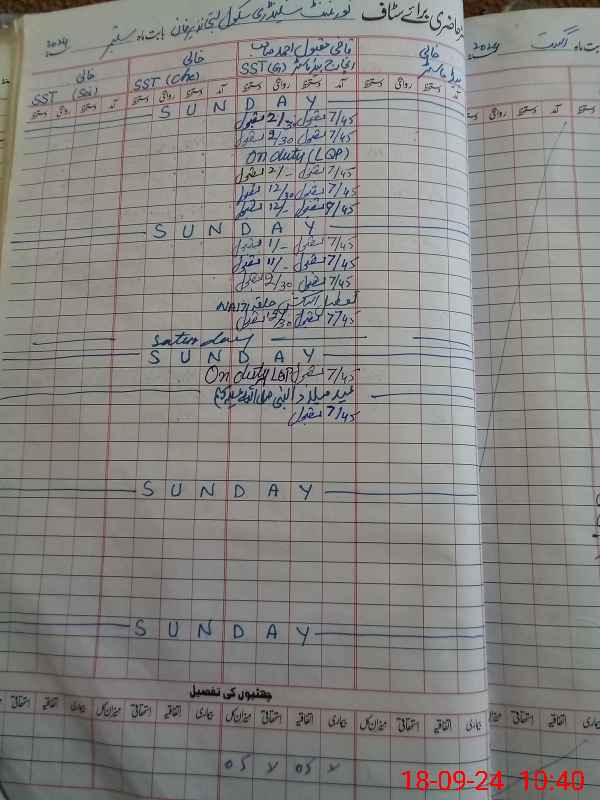 حاضری برائے سٹاف گورنمنٹ سیکنڈری سکول بابت ماہ ستمبر 2024
بابت ماہ اگست 2024
خالی
قاضی مقبول احمد صاحب
خالی
خالی
ہیڈ ماسٹر
انچارج ہیڈ ماسٹر SST(G)
SST (Che)
SST (Sci)
آمد دستخط روانگی دستخط آمد دستخط روانگی دستخط آمد دستخط روانگی دستخط آمد دستخط روانگی دستخط
SUNDAY
7/45 مقبول 2/30 مقبول
7/45 مقبول 2/30 مقبول
On duty (LQP)
7/45 مقبول 2/- مقبول
7/45 مقبول 12/30 مقبول
7/45 مقبول 12/- مقبول
SUNDAY
7/45 مقبول 1/- مقبول
7/45 مقبول 11/- مقبول
7/45 مقبول 2/30 مقبول
تعطیل حلقہ NA171
7/45 مقبول 12/30 مقبول
Saturday
SUNDAY
7/45 مقبول On duty LQP
عید میلاد النبی
7/45 مقبول
SUNDAY
SUNDAY
چھٹیوں کی تفصیل
بیماری اتفاقیہ استحقاقی میزان کل بیماری اتفاقیہ استحقاقی میزان کل بیماری اتفاقیہ استحقاقی میزان کل
x 05 x 05
18-09-24 10:40